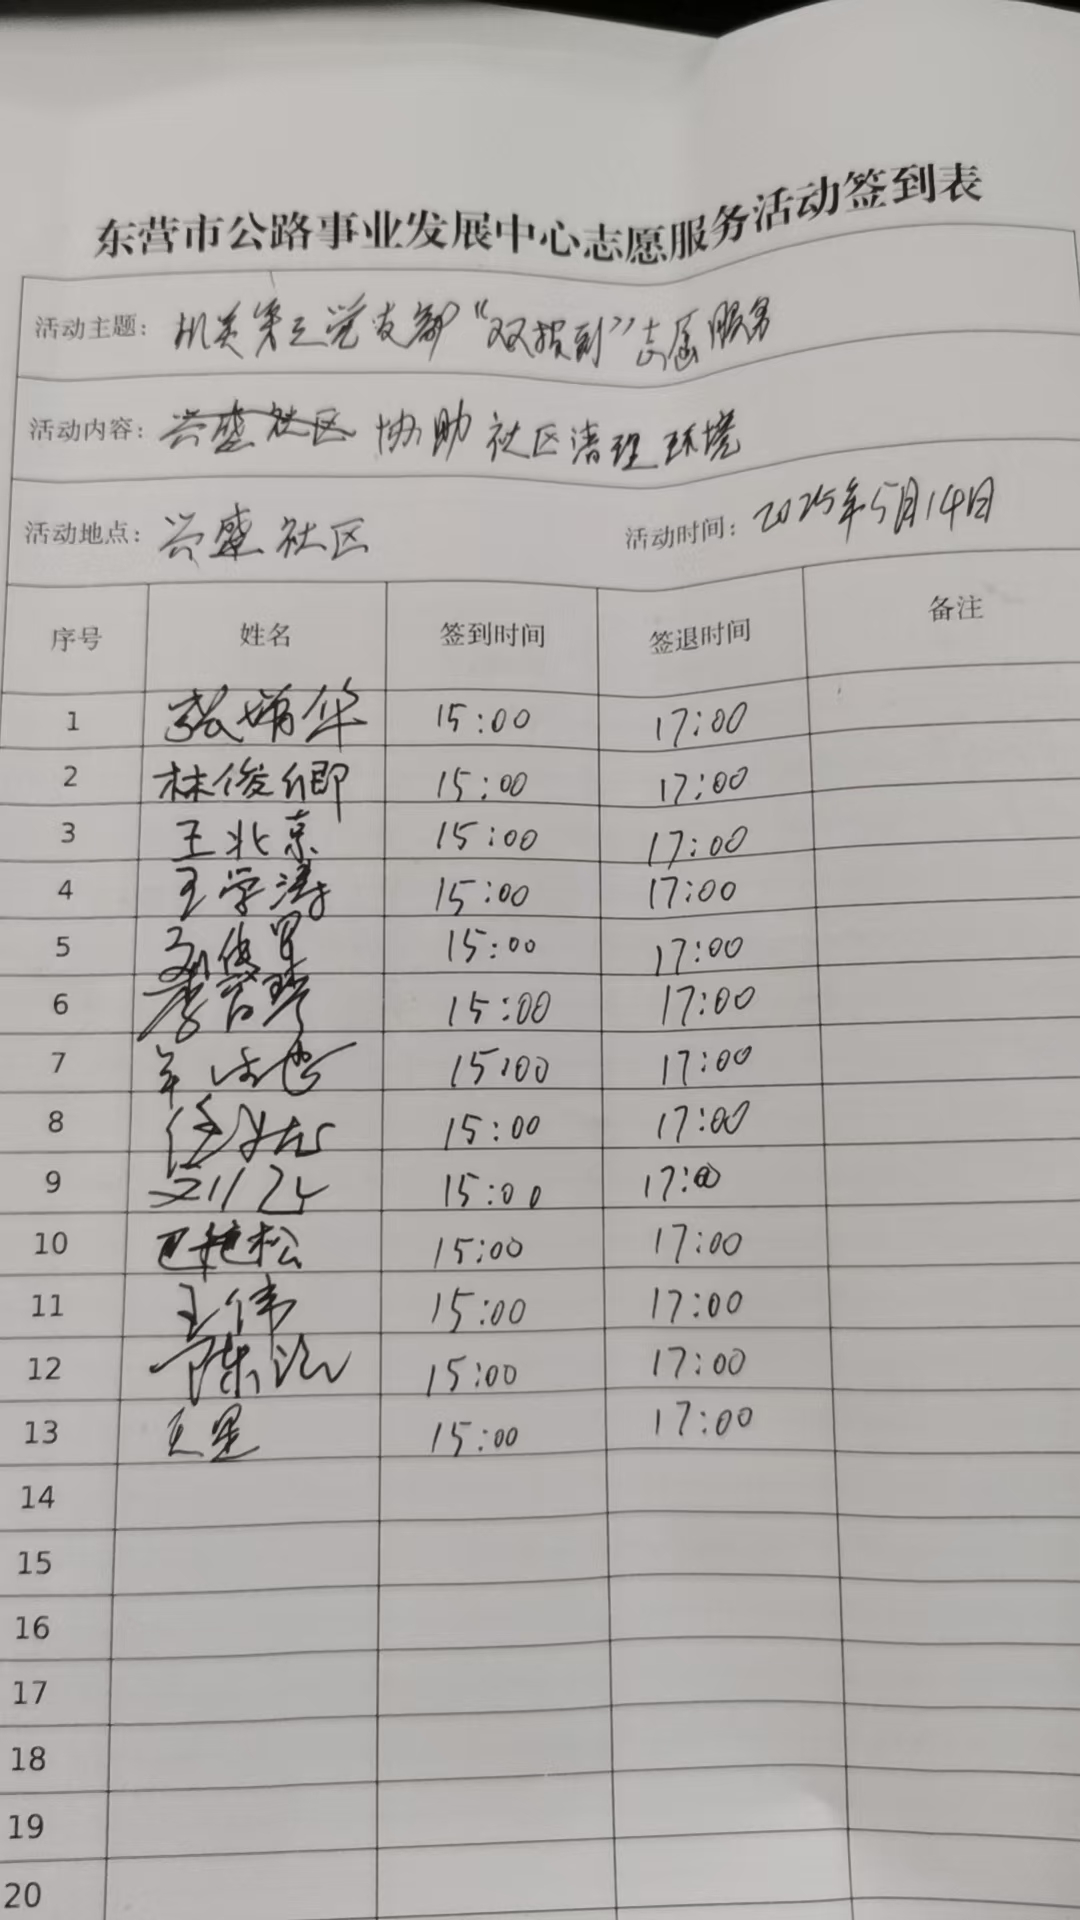 东营市公路事业发展中心志愿服务活动签到表
活动主题: 机关第三党支部“双报到”志愿服务
活动内容: 兴盛社区 协助社区清理环境
活动地点: 兴盛社区 活动时间: 2025年5月14日
序号 姓名 签到时间 签退时间 备注
1 张娟华 15:00 17:00
2 林俊卿 15:00 17:00
3 王北京 15:00 17:00
4 王学涛 15:00 17:00
5 15:00 17:00
6 15:00 17:00
7 15:00 17:00
8 15:00 17:00
9 15:00 17:00
10 巴艳松 15:00 17:00
11 王伟 15:00 17:00
12 陈泓 15:00 17:00
13 15:00 17:00
14
15
16
17
18
19
20